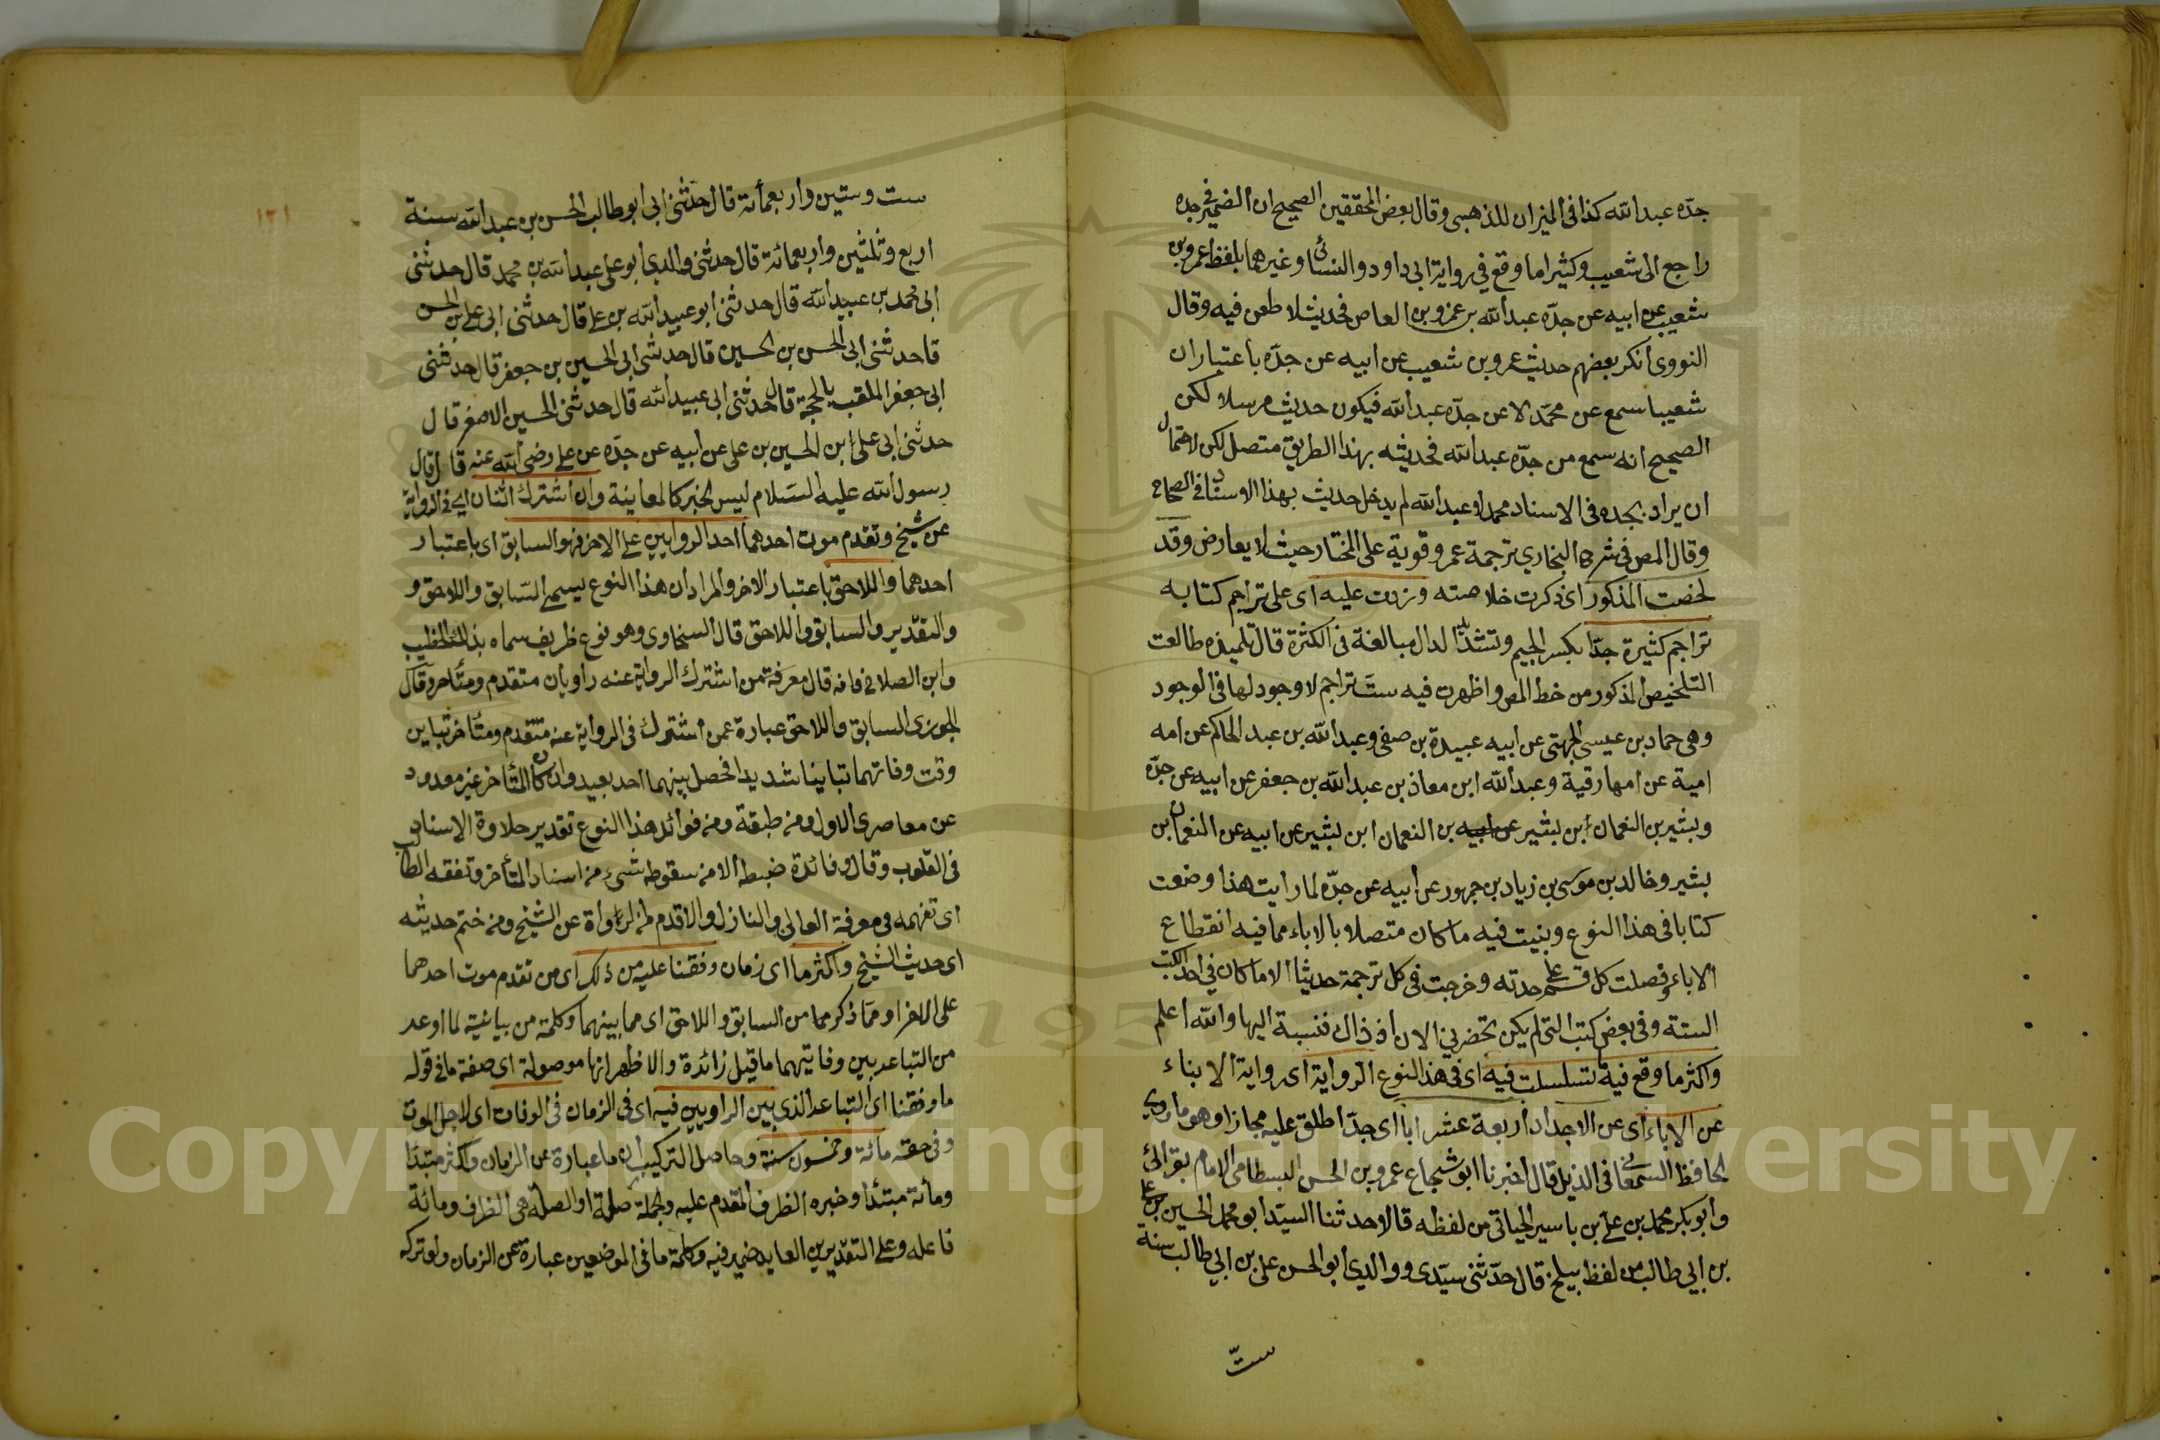 جدّه عبد الله كذا في الميزان للذهبى وقال بعض المحققين الصحيح ان الضمير في جده
راجع الى شعيب وكثيرا ما وقع في رواية ابى داود والنسائى وغيرهما بلفظ عمرو بن
شعيب عن ابيه عن جدّه عبد الله بن عمرو بن العاص فحديثه لا طعن فيه وقال
النووى أنكر بعضهم حديث عمرو بن شعيب عن ابيه عن جدّه باعتبار ان
شعيبا سمع عن محمّد لا عن جدّه عبد الله فيكون حديثه مرسلا لكن
الصحيح انه سمع من جدّه عبد الله فحديثه بهذا الطريق متصل لكن لاحتمال
ان يراد بجده في الاسناد محمد او عبد الله لم يدخل حديث بهذا الاسناد في الصحاح
وقال المص في شرح البخاري ترجمة عمرو قوية على المختار حيث لا يعارض وقد
لخصت المذكور اى ذكرت خلاصته وزدت عليه اى على تراجم كتابه
تراجم كثيرة جدّا بكسر الجيم وتشديد الدال مبالغة في الكثرة قال تلميذه طالعت
التلخيص المذكور من خط المص واظهرت فيه ستّ تراجم لا وجود لها في الوجود
وهى حماد بن عيسى الجهنى عن ابيه عبيدة بن صفى وعبد الله بن عبد الحاكم عن امه
امية عن امها رقية وعبد الله ابن معاذ بن عبد الله بن جعفر عن ابيه عن جدّه
وبشير بن النعمان ابن بشير عن ابيه بن النعمان ابن بشير عن ابيه عن النعمان بن
بشير وخالد بن موسى بن زياد بن جمهور عن أبيه عن جدّه لما رايت هذا وضعت
كتابا في هذا النوع وبنيت فيه ما كان متصلا بالاباء مما فيه انقطاع
الاباء وفصلت كل قسم على حدته وخرجت في كل ترجمة حديثا الا ما كان في احد الكتب
الستة وفي بعض كتب التى لم يكن تحضرني الان او ذاك فنسبة اليها والله اعلم
واكثر ما وقع فيه تسلسلت فيه اى في هذا النوع الرواية اى رواية الابناء
عن الاباء اى عن الاجداد اربعة عشر ابا اى جدّا اطلق عليه مجازا وهو ما روى
الحافظ السمعانى في الذيل قال اخبرنا ابو شجاع عمرو بن الحسن البسطامى الامام بقراتى
وأبو بكر محمد بن على بن ياسر الجياني من لفظه قالا حدثنا السيّد ابو محمد الحسين بن على
بن ابي طالب من لفظ ببلخ قال حدّثنى سيّدى ووالدي أبو الحسن على بن ابي طالب سنة
ستّ
١٢١
ست وستين وأربعمأئة قال حدّثنى ابى ابو طالب الحسن بن عبد الله سنة
اربع وثلثين واربعمائة قال حدثنى والدي أبو على عبد الله بن محمد قال حدثنى
ابى محمد بن عبيد الله قال حدثنى ابو عبيد الله بن على قال حدثنى ابى على بن الحسن
قا حدثنى ابى الحسن بن الحسين قال حدثنى ابى الحسين بن جعفر قال حدثنى
ابى جعفر الملقب بالحجة قال حدثنى ابى عبيد الله قال حدثنى الحسين الاصغر قال
حدثنى ابى على ابن الحسين بن على عن أبيه عن جدّه عن على رضى الله عنه قال قال
رسول الله عليه السّلام ليس الخبر كالمعاينة وان اشترك اثنان اى في الرواية
عن شيخ وتقدم موت احدهما احد الراويين على الاخر فهو السابق اى باعتبار
احدهما واللاحق باعتبار الاخر والمراد ان هذا النوع يسمى السّابق واللاحق و
والتقدير والسابق واللاحق قال السخاوى وهو نوع ظريف سماه بذلك الخطيب
وابن الصلاح فانه قال معرفة من اشترك الرواية عنه راويان متقدم ومتأخر وقال
الجوزى السابق واللاحق عبارة عمن اشترك في الرواية عنه متقدم ومتأخر تباين
وقت وفاتهما تباينا شديدا فحصل بينهما احد بعيد وان كان المتأخر غير معدود
عن معاصرى الاول ومن طبقة ومن فوائد هذا النوع تقدير حلاوة الاسناد
في القلوب وقال وفائدة ضبطه الامن سقوطه شىء من اسناد المتأخر وتفقه الطالب
اى تفهمه في معرفة العالى والنازل والاقدم من الرواة عن الشيخ ومن ختم حديثه
اى حديث الشيخ واكثر ما اى زمان وفقنا عليه من ذلك اى من تقدم موت احدهما
على الاخر او ممّا ذكر مما من السابق واللاحق اى مما بينهما وكلمة من بيانية لما او عد
من التباعد بين وفاتيهما ما قيل زائدة والاظهر انها موصولة اى صفة ما في قوله
ما وفقنا اى التباعد الذى بين الراويين فيه اى في الزمان في الوفاة اى لاجل الموت
وفى حقه مائة وخمسون سنة وحاصل التركيب ان ما عبارة عن الزمان واكثر مبتدا
ومأئة مبتدأ وخبره الظرف المقدم عليه والجملة صلة او الصلة هى الظرف ومائة
فاعله وعلى التقديرين العايد ضمير فيه وكلمة ما في الموضعين عبارة عن الزمان ولو تركه
Copyright © King Saud University